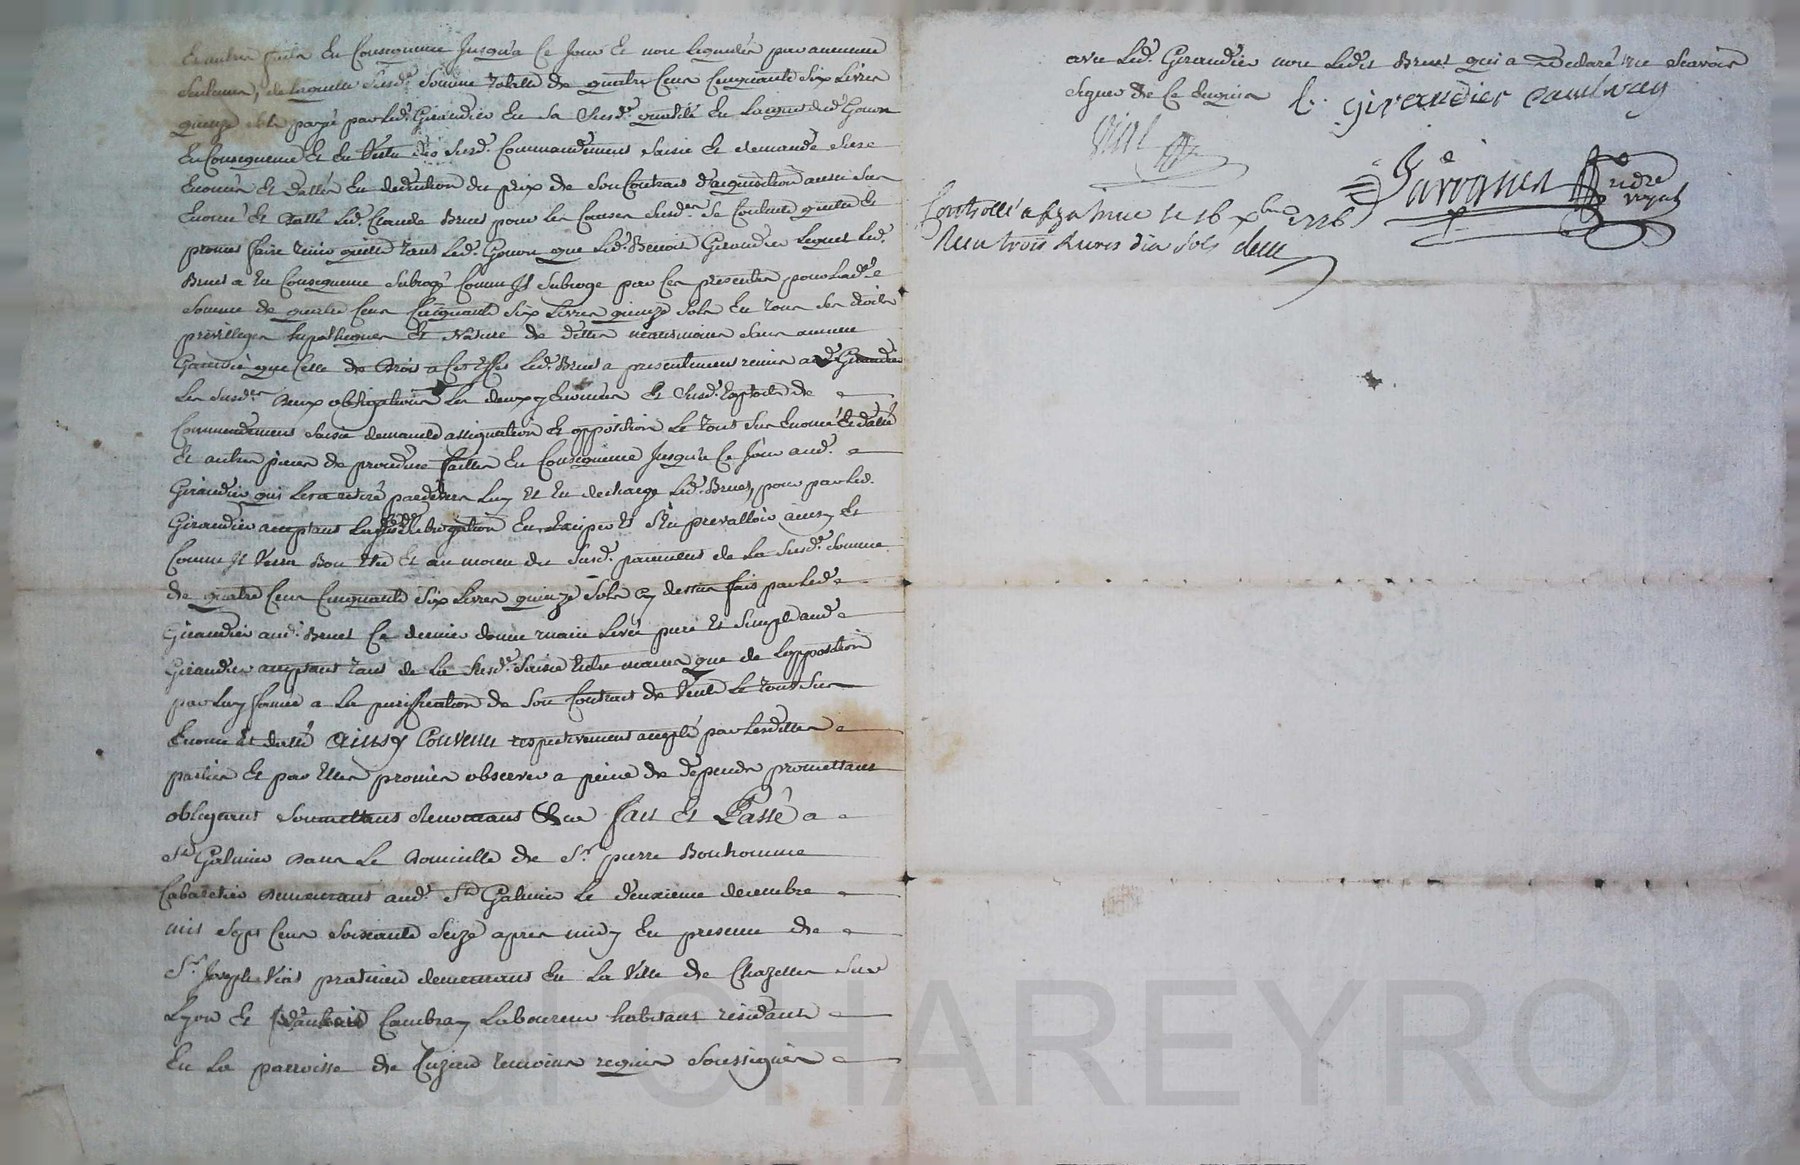 Et autres faits En Consequence Jusqua Ce Jour Et non liquidés par aucune
seulement, de laquelle susd.e somme totalle de quatre Cens Cinquante Six Livres
quinze sols payé par led. Girandier En sa susd.e qualité En l'acquit dud. Gouon
En Consequence Et En Vertu des susd. Commandement saisie Et demande
Enoncés Et dattés En deduction du prix de son Contrat d'acquisition aussi sus
Enoncé Et datté led. Claude Brunt pour les Causes susd.es se Contente quitte Et
promet faire tenir quitte tant led. Gouon que led. Benoit Girandier lequel led.
Brunt a En Consequence subrogé Comme Jl subroge par Ces presentes pour lad.e
somme de quatre Cens Cinquante Six Livres quinze sols En tous ses droits
privilleges hypotheques Et nature de dettes neanmoins sans aucune
Garentie que Celle de droit a Cet Effet led. Brunt a presentement remis aud. Girandier
les susd.es deux obligations les deux y Enoncées Et susd. Exploits de
Commandement saisie demande assignation Et opposition le tout sus Enoncé Et datté
Et autres pieces de procedure faittes En Consequence Jusqua Ce Jour aud.
Girandier qui les a retiré pardevers luy Et En decharge led. Brunt, pour par led.
Girandier acceptant lad. subrogation En Exciper Et s'En prevalloir ainsy Et
Comme Jl Verra Bon Etre Et au moien du susd. paiement de la susd.e somme
de quatre Cens Cinquante Six Livres quinze sols cy dessus fait par led.
Girandier aud. Brunt Ce dernier donne main levée pure Et simple aud.
Girandier acceptant tant de la susd.e saisie Entre mains que de l'opposition
par luy formée a la purification de son Contrat de Vente le tout sus
Enoncé Et datté ainsy Convenu respectivement accepté par lesdittes
parties Et par Elles promis observer a peine de depends promettant
obligeant soumettant renonceant &ca fait Et Passé a
St Galmier dans le domicille de Sr pierre Bonhomme
Cabaretier demeurant aud. St Galmier le deuxieme decembre
mil sept Cens soixante seize apres midy En presence de
Sr Joseph Vial praticien demeurant En la Ville de Chazelles sur
Lyon Et Cambray laboureur habitant residant
En la parroisse de Cuzieu temoins requis soussignés
avec led. Girandier non ledit Brunt qui a declaré ne scavoir
signer de Ce Enquis b. girandier Cambray
Vial
Controllé a St Galmier le 16 xbre 1776
Recu trois livres dix sols
Nre royal